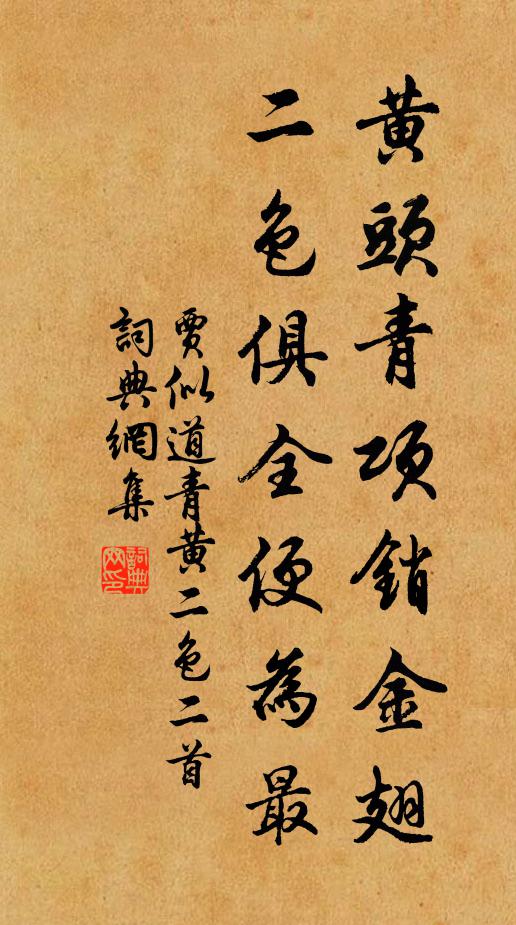 黄頭青項銷金翅
二色俱全便為最
賈似道青黄二色二首
詞典網集
詞典網印